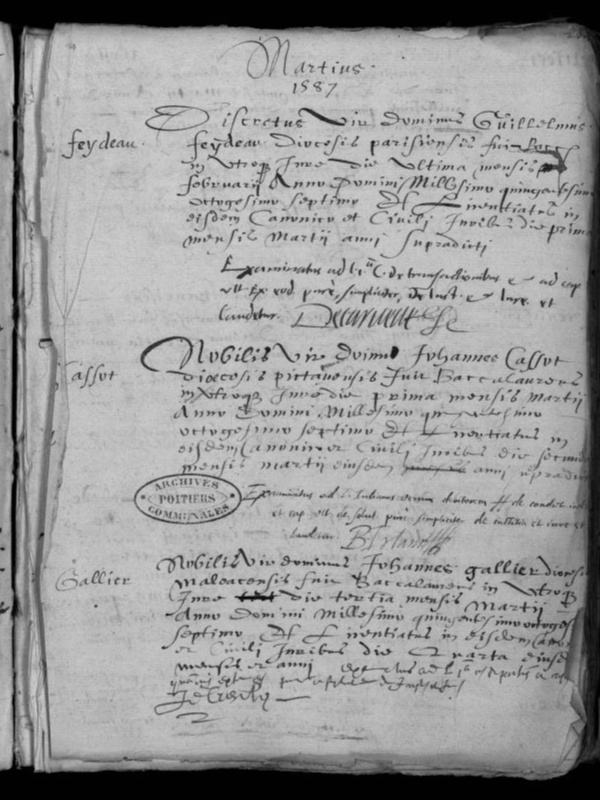 Martius
1587
Discretus Vir dominus Guillelmus
feydeau
feydeau Diocesis parisiensis fuit Bacc
in Vtroq Jure die Vltima mensis
februarij Anno Domini Millesimo quingentesimo
octogesimo septimo Et Licentiatus in
eisdem Canonico et Ciuili Juribus die prima
mensis Martii anni supradicti
Examinatus ad l. C. de transactionibus et ad cap
et
laudetur
Nobilis Vir Domin Johannes Cassot
Cassot
diocesis pictauensis fuit Baccalaureus
in Vtroq Jure die prima mensis Martij
Anno Domini Millesimo quingentesimo
octogesimo septimo Et Licentiatus in
eisdem Canonico et Ciuili Juribus die secunda
mensis martii eiusdem anni supradicti
ARCHIVES
POITIERS
COMMUNALES
Examinatus ad l.
et cap
Nobilis Vir dominus Johannes gallier diocesis
Gallier
Maleacensis fuit Baccalaureus in Vtroq
Jure die tertia mensis Martij
Anno Domini Millesimo quingentesimo octoges
septimo Et Licentiatus in eisdem Cano
et Ciuili Juribus die Quarta eiusd
mensis et anni